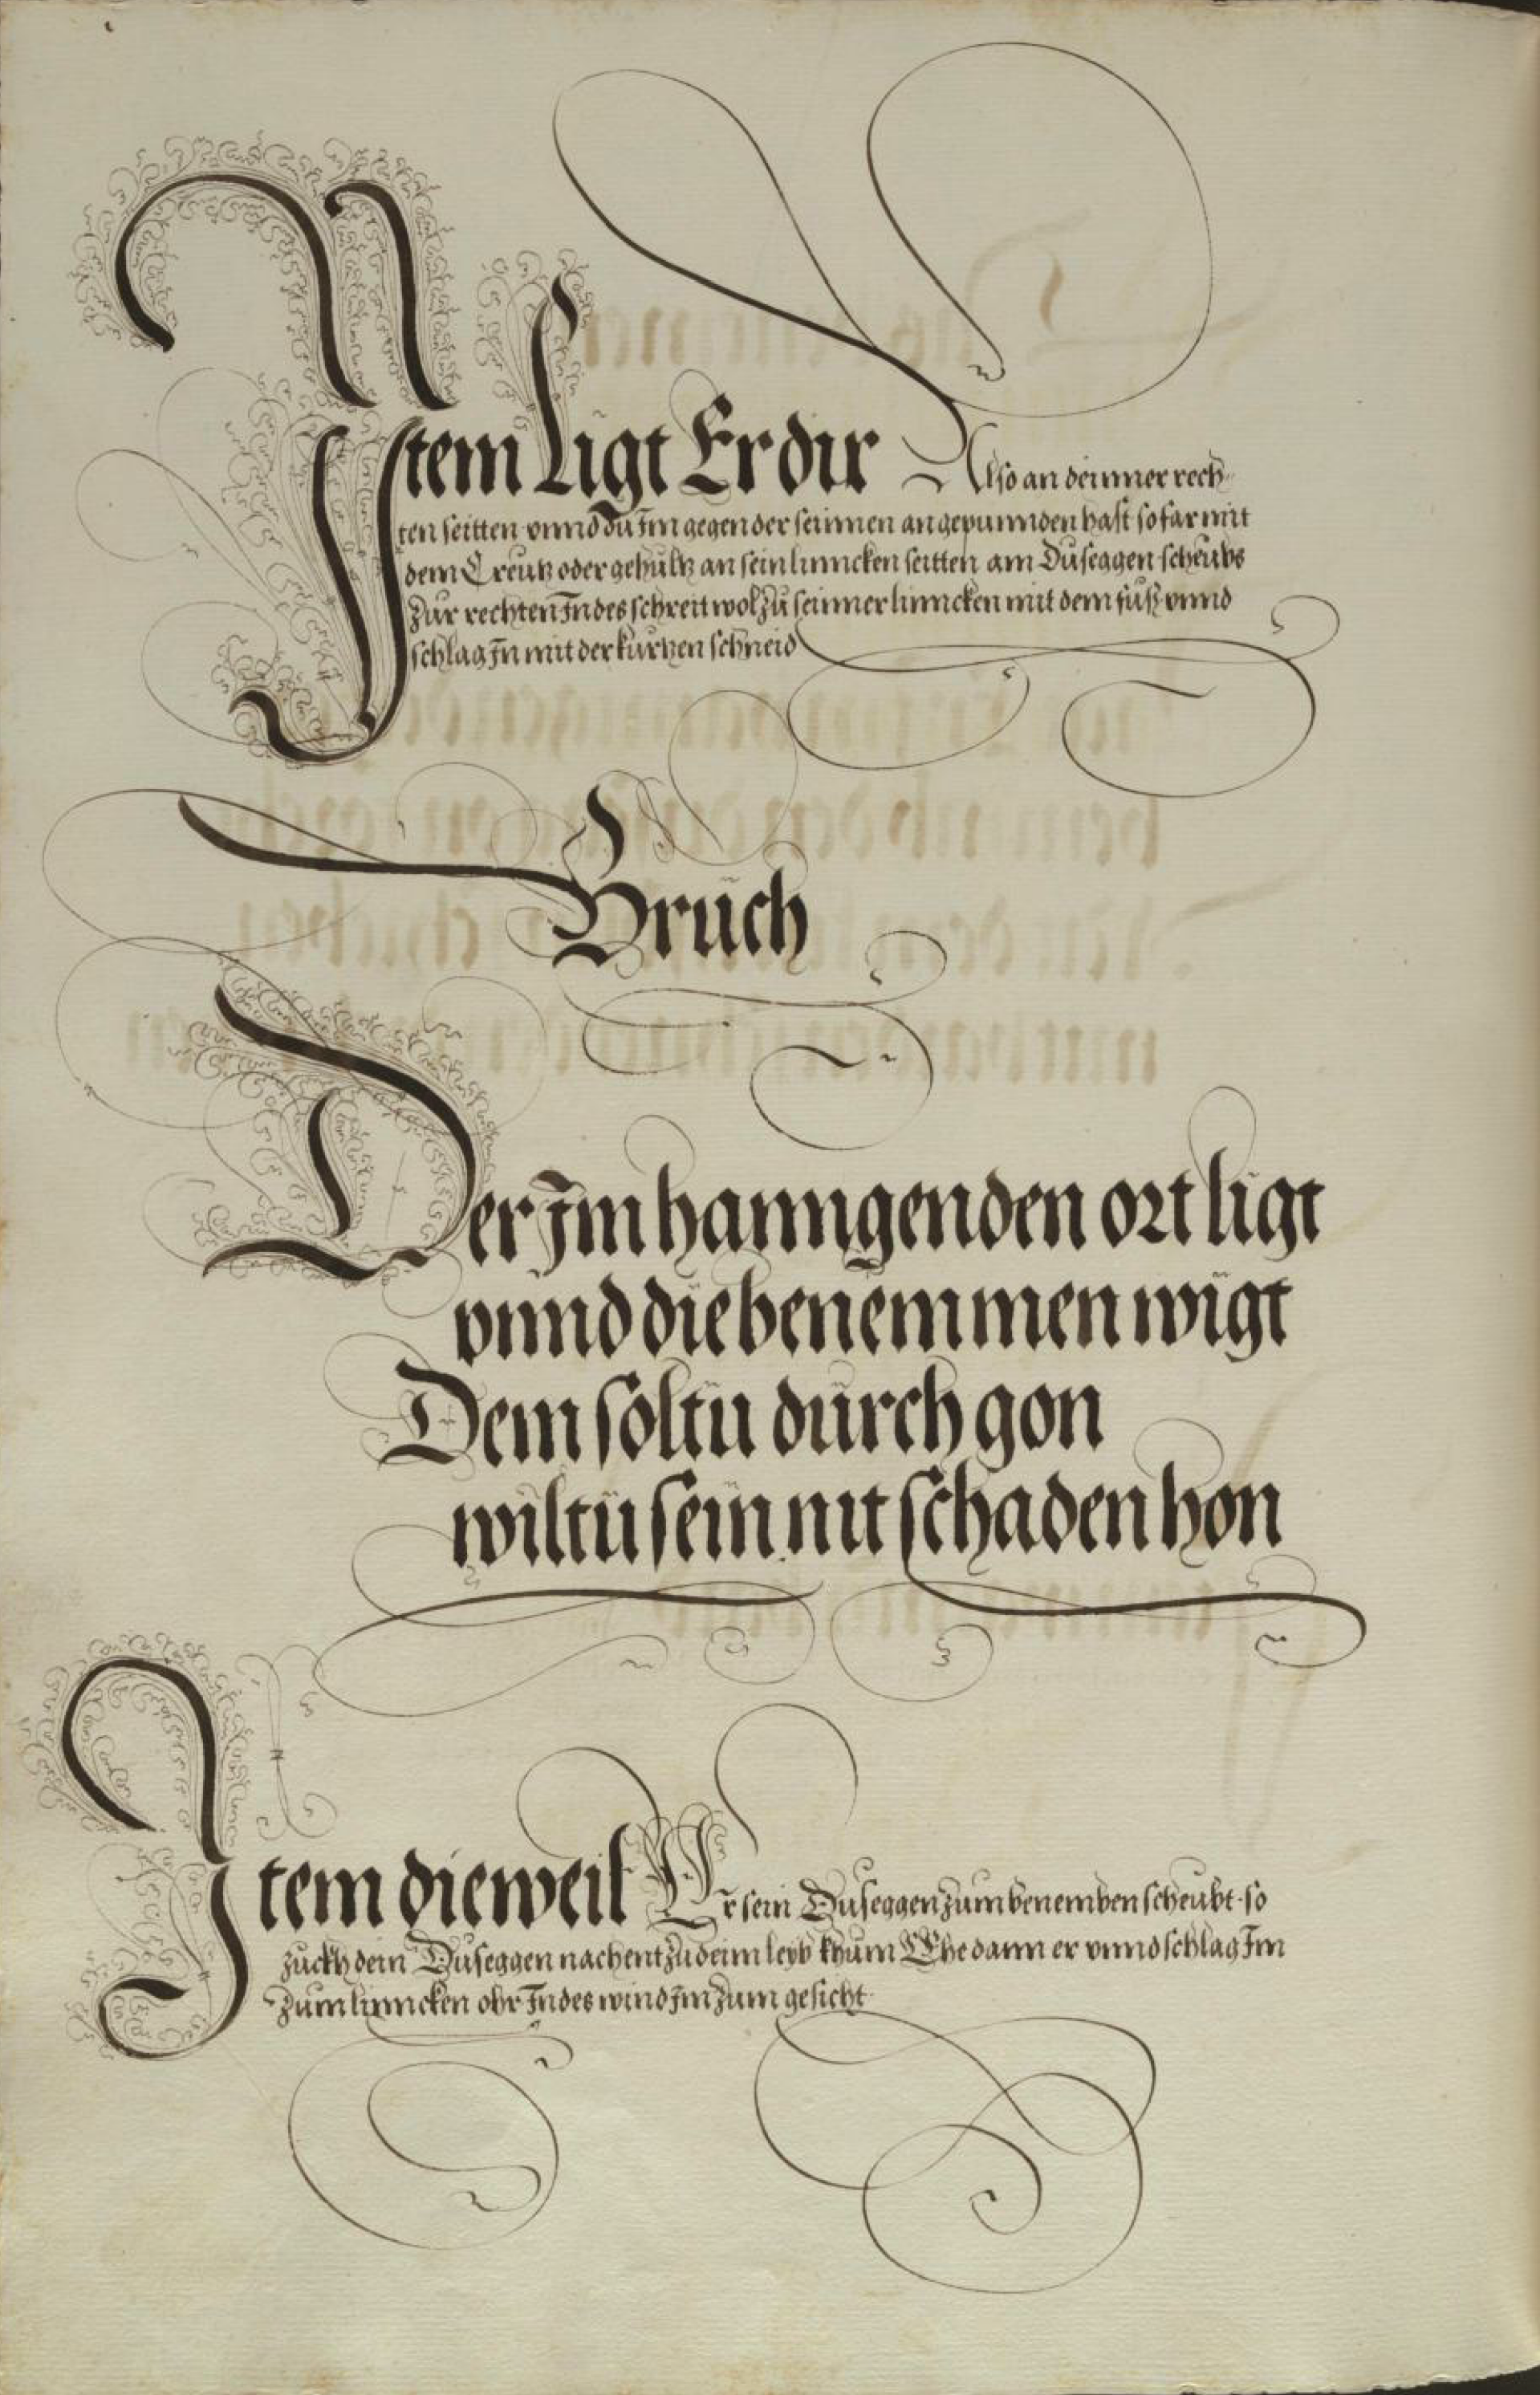 Item Ligt Er dir Also an deinner rech-
ten seitten vnnd du Im gegen der seinnen angepunnden hast so far mit
dem Creutz oder gehultz an sein linncken seitten am Duseggen scheubs
zur rechten Indes schreit wol zu seinner linncken mit dem fuß vnnd
schlag In mit der kurtzen schneid
Bruch
Der Im hanngenden ort ligt
vnnd die benemmen wigt
Dem soltu durch gon
wiltu sein nit schaden hon
Item dieweil Er sein Duseggen zum benemben scheubt so
zuckh dein Duseggen nachent zu deim leyb khum Ehe dann er vnnd schlag Im
zum linncken ohr Indes wind Im zum gesicht